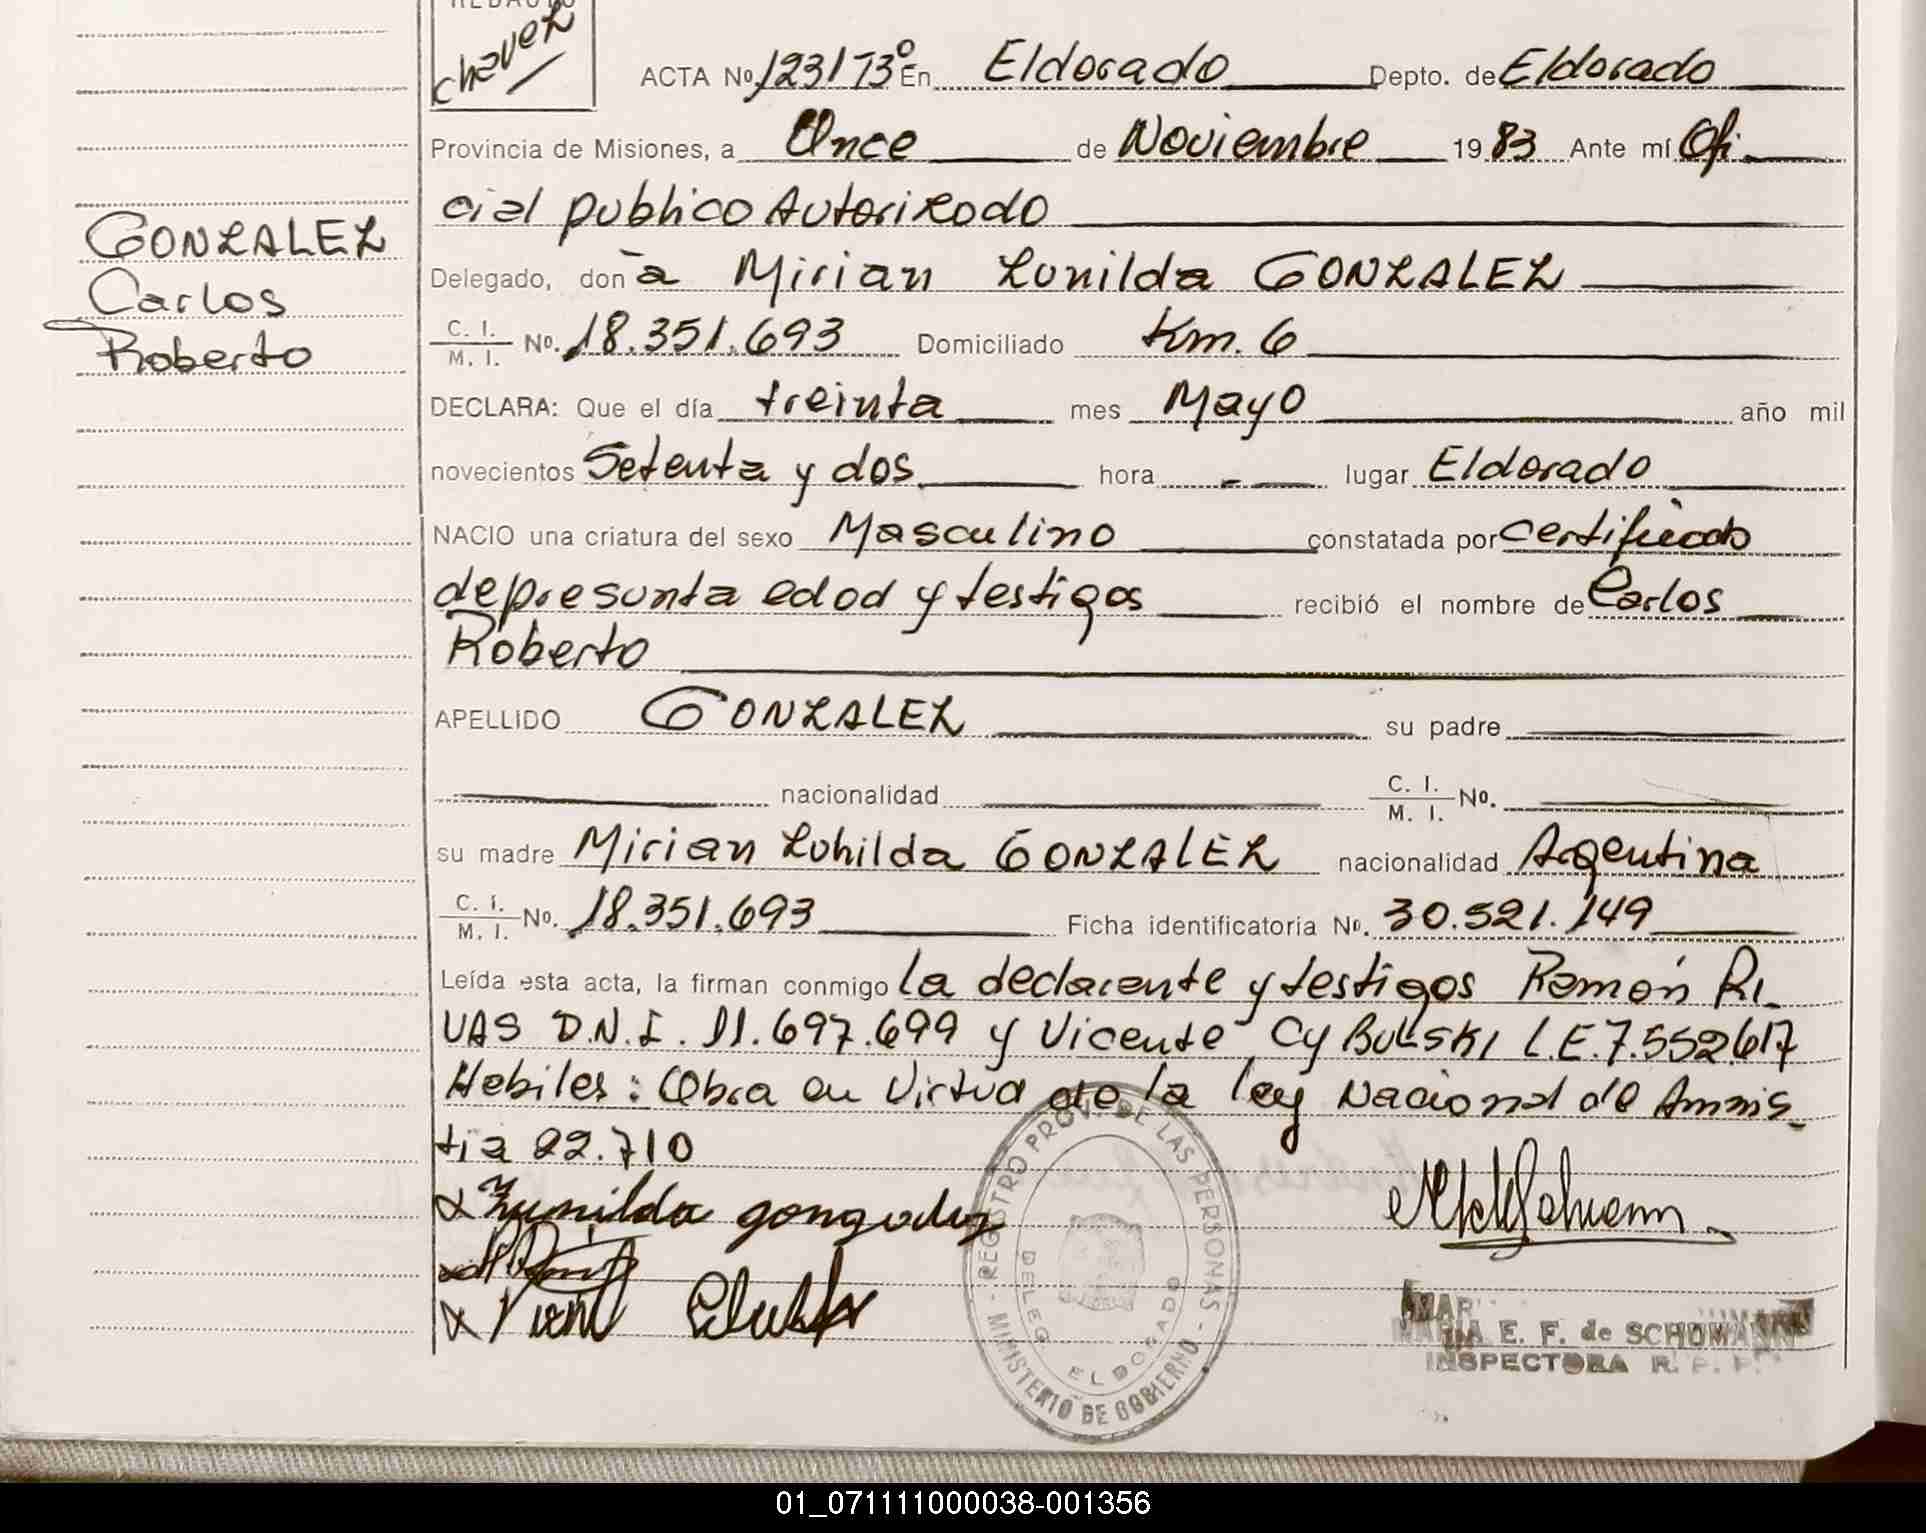 REDACTO
Chavez
ACTA No. 1231 T3º En Eldorado Depto. de Eldorado
Provincia de Misiones, a Once de Noviembre 19 83 Ante mí Ofi
cial publico Autorizado
GONZALEZ
Carlos
Roberto
Delegado, don a Mirian Zunilda GONZALEZ
C. I. / M. I. No. 18.351.693 Domiciliado Km. 6
DECLARA: Que el día treinta mes Mayo año mil
novecientos Setenta y dos hora - lugar Eldorado
NACIO una criatura del sexo Masculino constatada por certificado
de presunta edad y testigos recibió el nombre de Carlos
Roberto
APELLIDO GONZALEZ su padre
nacionalidad C. I. / M. I. No.
su madre Mirian Zunilda GONZALEZ nacionalidad Argentina
C. I. / M. I. No. 18.351.693 Ficha identificatoria No. 30.521.149
Leída esta acta, la firman conmigo la declarante y testigos Ramón RI_
VAS D.N.I. 11.697.699 y Vicente CyBULSKI L.E. 7.552.617
Habiles: Obra en Virtud de la ley Nacional de Amnis_
tia 22.710
x Zunilda gonzalez
REGISTRO PROV. DE LAS PERSONAS - MINISTERIO DE GOBIERNO -
DELEG. ELDORADO
MARIA E. F. de SCHUMANN
INSPECTORA R. P. P.
01_071111000038-001356